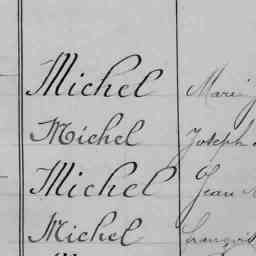 Michel Marie
Michel Joseph
Michel Jean
Michel